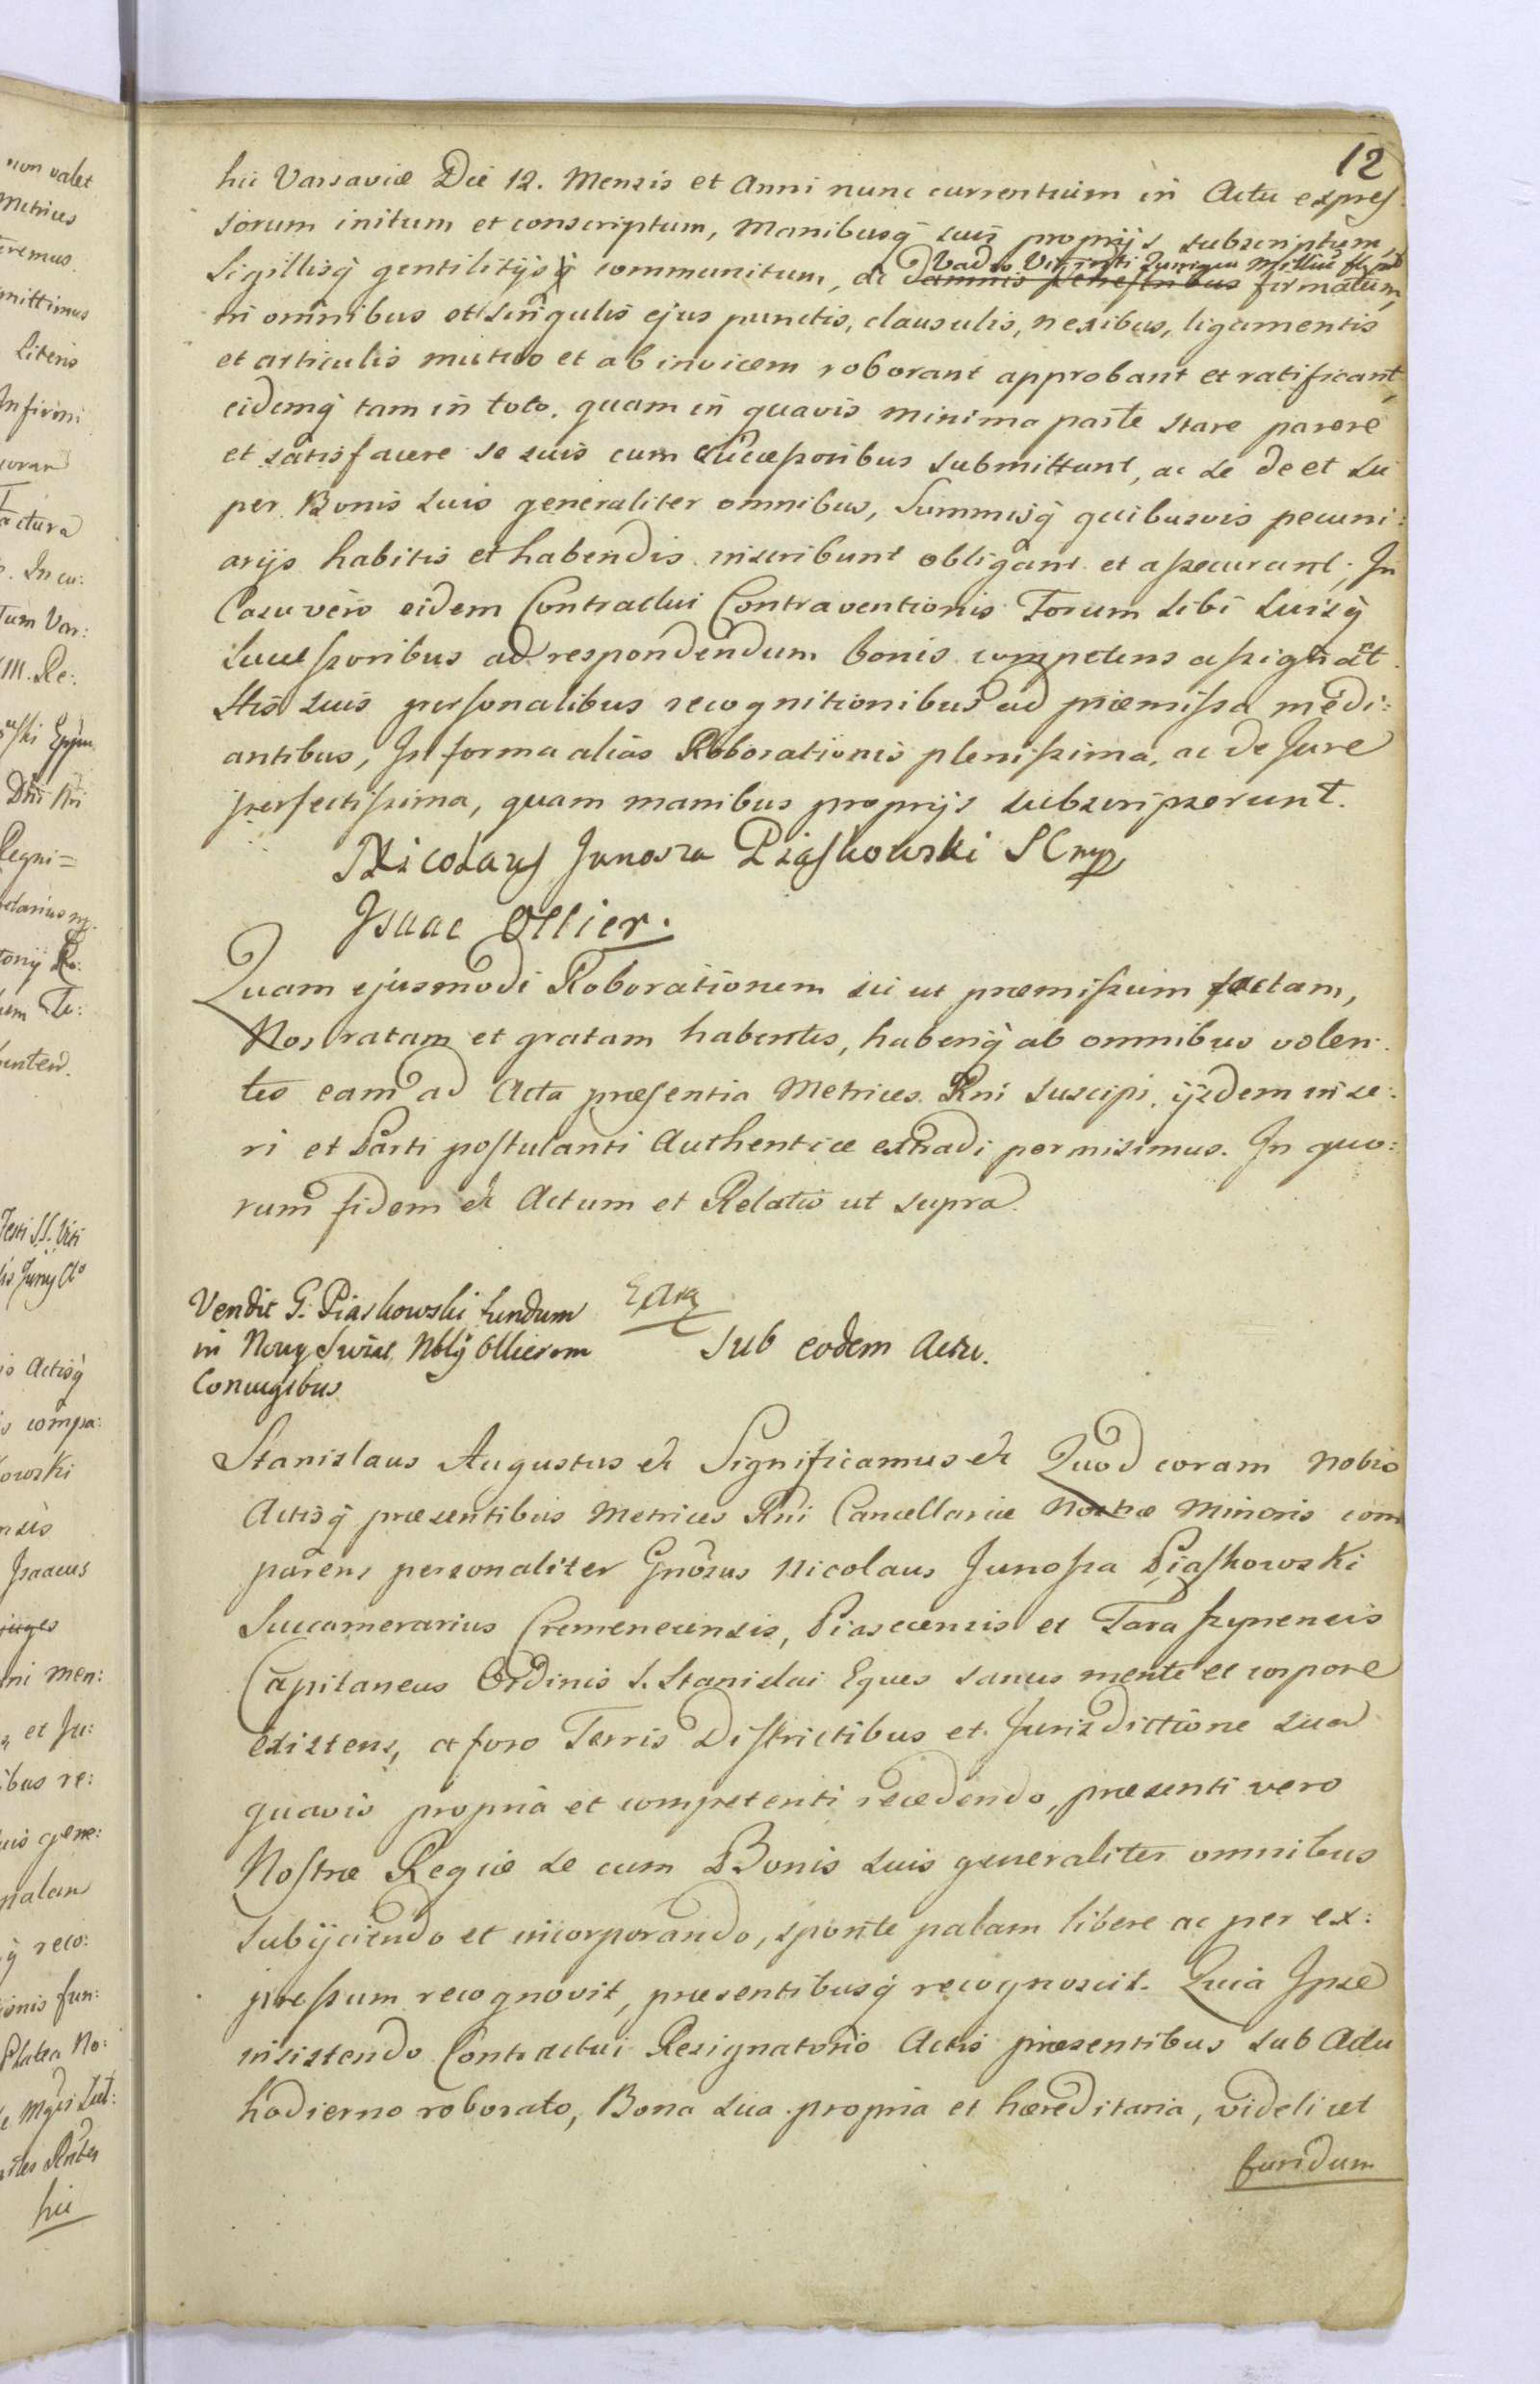 12
hic Varsaviæ Die 12. Mensis et Anni nunc currentium in Actu expres
sorum initum et conscriptum, Manibusq̀ suis proprijs subscriptum,
Vadio Viginti Quinque Millia
Sigillisq̀ gentilitijsq̀ communitum, ac damnis terrestribus firmatum,
in omnibus et singulis ejus punctis, clausulis, nexibus, ligamentis
et articulis mutuo et ab invicem roborant approbant et ratificant,
eidemq̀ tam in toto, quam in quavis minima parte stare parere
et satisfacere se suis cum Successoribus submittunt, ac se de et su
per Bonis suis generaliter omnibus, Summisq̀ quibusvis pecuni:
arijs habitis et habendis inscribunt obligant et assecurant; In
Casu vero eidem Contractui Contraventionis Forum sibi suisq̀
Successoribus ad respondendum bonis competens assignant.
Htis suis personalibus recognitionibus ad præmissa medi:
antibus, In forma alias Roborationis plenissima, ac de Jure
perfectissima, quam manibus proprijs subscripserunt.
Nicolaus Junosza Piaskowski SCmp
Isaac Ollier.
Quam ejusmodi Roborationem sic ut præmissum factam,
Nos ratam et gratam habentes, haberiq̀ ab omnibus volen:
tes eam ad Acta præsentia Metrices Rni suscipi, ijsdem inse:
ri et Parti postulanti Authentice extradi permisimus. In quo:
rum fidem & Actum et Relatio ut supra.
Vendit G. Piaskowski fundum
in Nowy Swiat Nblq̀ Ollierom
Conjugibus
Extra
Sub eodem Actu.
Stanislaus Augustus & Significamus & Quod coram Nobis
Actisq̀ præsentibus Metrices Rni Cancellariæ Nostræ Minoris com
parens personaliter Gnosus Nicolaus Junossa Piaskowski
Succamerarius Cremenecensis, Piasecensis et Taraszynensis
Capitaneus Ordinis S. Stanislai Eques sanus mente et corpore
existens, a foro Terris Districtibus et Jurisdictione sua
quavis propria et competenti recedendo, præsenti vero
Nostræ Regiæ se cum Bonis suis generaliter omnibus
subijciendo et incorporando, sponte palam libere ac per ex:
pressum recognovit, præsentibusq̀ recognoscit. Quia Ipse
insistendo Contractui Resignatorio Actis præsentibus sub Actu
hodierno roborato, Bona sua propria et hæreditaria, videlicet
fundum